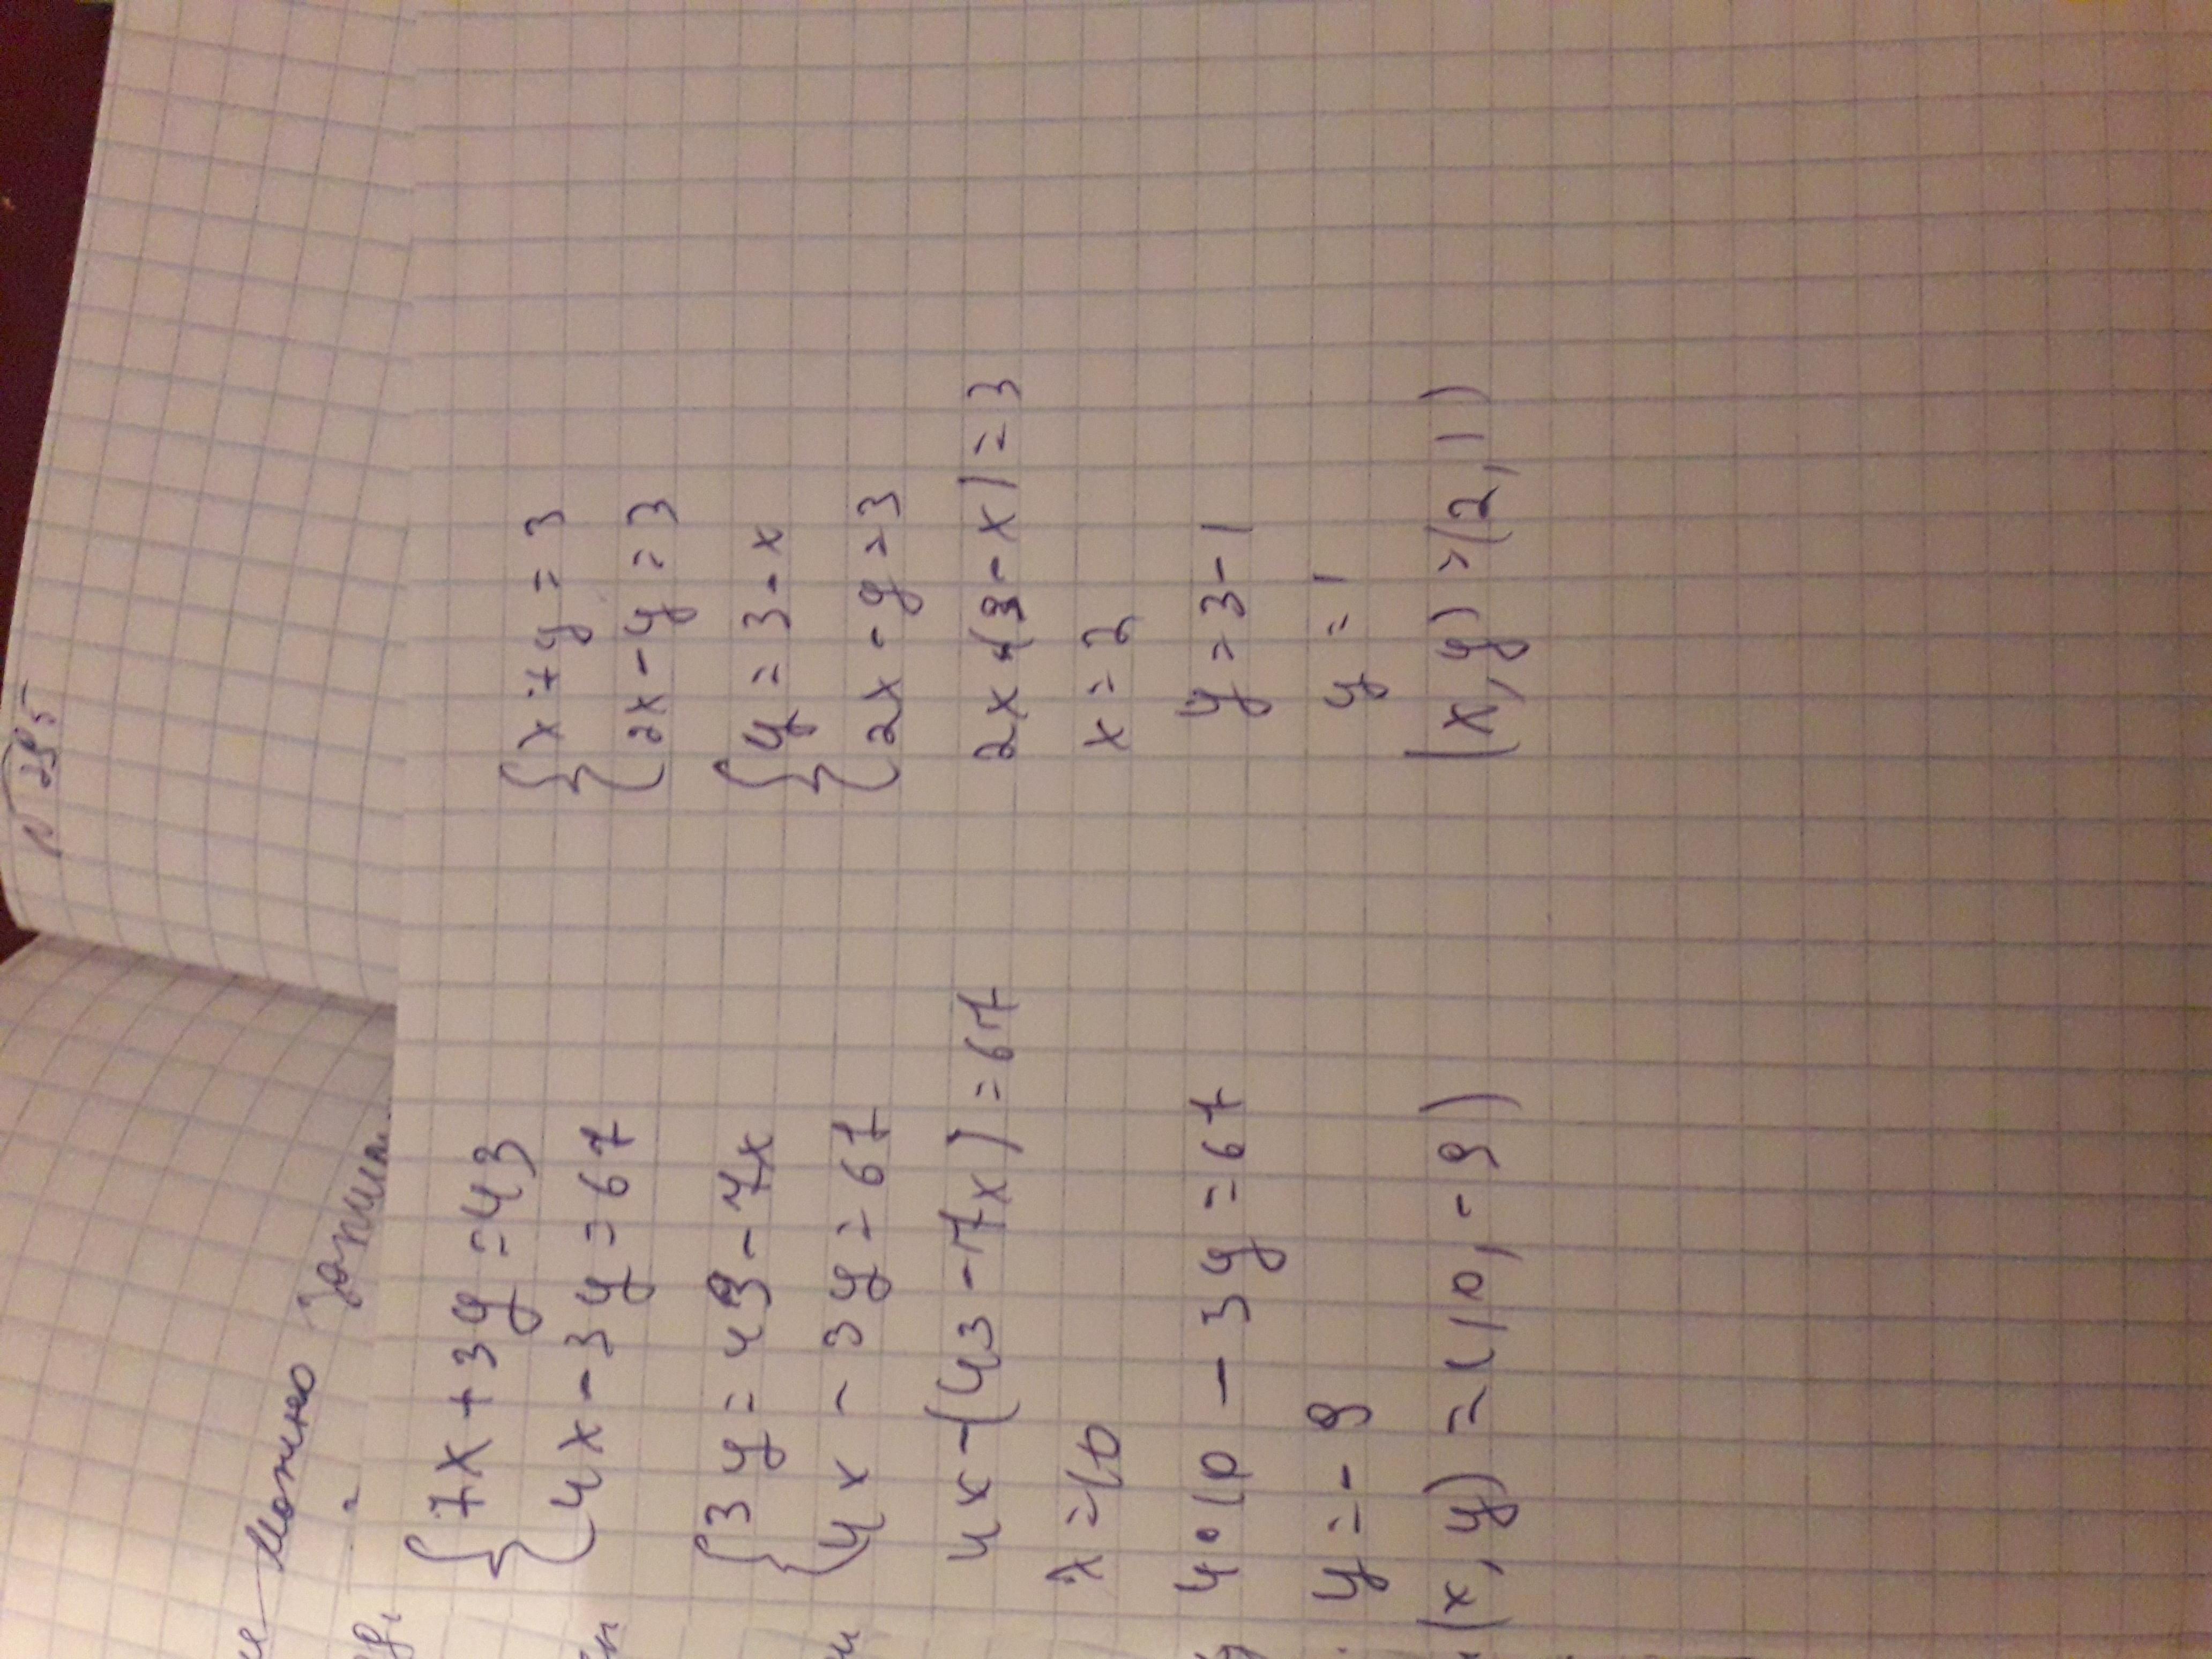 285
Можно
{7x + 3y = 43
{4x - 3y = 67
{3y = 43 - 7x
{4x - 3y = 67
4x - (43 - 7x) = 67
x = 10
4 • 10 - 3y = 67
y = - 9
(x, y) = (10, - 9)
{x + y = 3
{2x - y = 3
{y = 3 - x
{2x - y = 3
2x - (3 - x) = 3
x = 2
y = 3 - 1
y = 1
(x, y) = (2, 1)